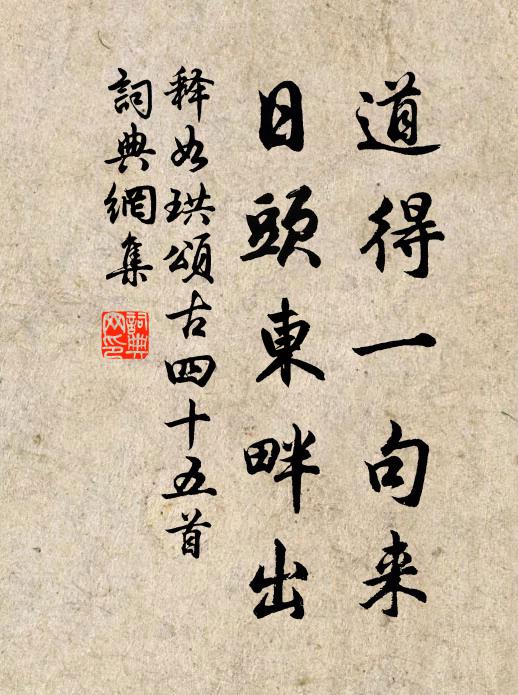 道得一句来
日頭東畔出
释如珙頌古四十五首
詞典網集
詞典网印